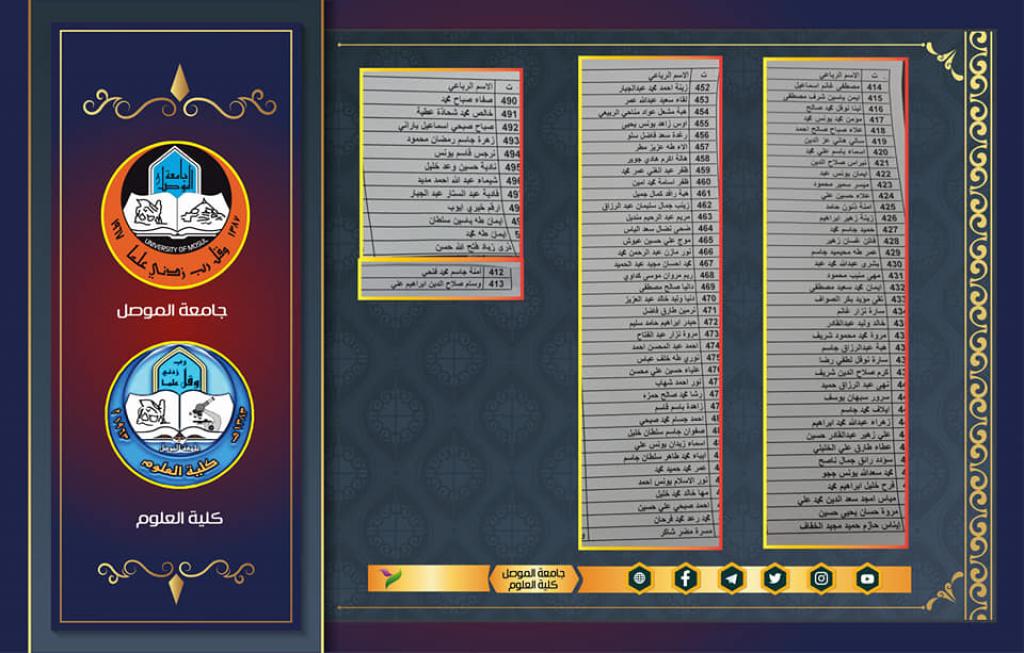 جامعة الموصل
UNIVERSITY OF MOSUL
وقل رب زدني علما
١٩٦٧
١٣٨٧
جامعة الموصل
رب زدني
وقل علما
جامعة الموصل
كلية العلوم
كلية العلوم
ت الاسم الرباعي
414 مصطفى غانم اسماعيل
415 ايمن ياسين شرف مصطفى
416 لينا نوفل محمد صالح
417 مؤمن محمد يونس محمد
418 علاء صباح صالح احمد
419 سالي هاني عز الدين
420 اسماء باسم علي محمد
421 نبراس صلاح الدين
422 ايمان يونس عبد
423 ميسر سمير محمود
424 علاء حسين علي
425 امنة ذنون حامد
426 زينة زهير ابراهيم
427 حميد جاسم محمد
428 فاتن غسان زهير
429 عمر طه محيميد جاسم
430 بشرى عبدالله محمد عبد
431 مهى منيب محمود
432 ايمان محمد سعيد مصطفى
433 تقى مؤيد بكر الصواف
سارة نزار غانم
خالد وليد عبدالقادر
مروة محمد محمود شريف
هبة عبدالرزاق جاسم
سارة نوفل لطفي رضا
كرم صلاح الدين شريف
نهى عبد الرزاق حميد
سرور سبهان يوسف
ايلاف محمد جاسم
زهراء عبدالله محمد ابراهيم
علي زهير عبدالقادر حسين
عطاء طارق علي الخليلي
سؤدد رائق جمال ناصح
محمد سعدالله يونس ججو
فرح خليل ابراهيم محمد
مياس امجد سعد الدين محمد علي
مروة حسان يحيى حسين
ايناس حازم حميد مجيد الخفاف
ت الاسم الرباعي
452 زينة احمد محمد عبدالجبار
453 لقاء سعيد عبدالله عمر
454 هبة مشعل عواد مناحي الربيعي
455 اوس زاهد يونس يحيى
456 رغدة سعد فاضل سلو
457 الاء طه عزيز مطر
458 هالة اكرم هادي جوير
459 ظفر عبد الغني عمر محمد
460 ظفر اسامة محمد امين
461 هبة رافد كمال جميل
462 زينب جمال سليمان عبد الرزاق
463 مريم عبد الرحيم منديل
464 ضحى نضال سعد الياس
465 موج علي حسين عبوش
466 نور مازن عبد الرحمن محمد
467 محمد احسان مجيد عبد الحميد
468 ريم مروان موسى كداوي
469 داليا صالح مصطفى
470 دنيا وليد خالد عبد العزيز
471 نرمين طارق فاضل
472 حيدر ابراهيم حامد سليم
473 مروة نزار عبد الفتاح
474 احمد عبد المحسن احمد
475 نوري طه خلف عباس
علياء حسين علي محسن
نور احمد شهاب
رشا محمد صالح حمزه
زاهدة باسم قاسم
احمد جسام محمد صبحي
صفوان جاسم سلطان خليل
اسماء زيدان يونس علي
ابياء محمد طاهر سلطان جاسم
عمر محمد حميد محمد
نور الاسلام يونس احمد
مها خالد محمد خليل
احمد صبحي علي حسين
محمد رعد محمد فرحان
مسرة مضر شاكر
ت الاسم الرباعي
490 صفاء صباح محمد
491 خالص محمد شحاذة عطية
492 صباح صبحي اسماعيل باراني
493 زهرة جاسم رمضان محمود
494 نرجس قاسم يونس
نادية حسين وعد خليل
شيماء عبد الله احمد مديد
فادية عبد الستار عبد الجبار
ارقم خيري ايوب
ايمان طه ياسين سلطان
ايمان طه محمد
ذرى زياد فتح الله حسن
412 امنة جاسم محمد فتحي
413 وسام صلاح الدين ابراهيم علي
جامعة الموصل
كلية العلوم